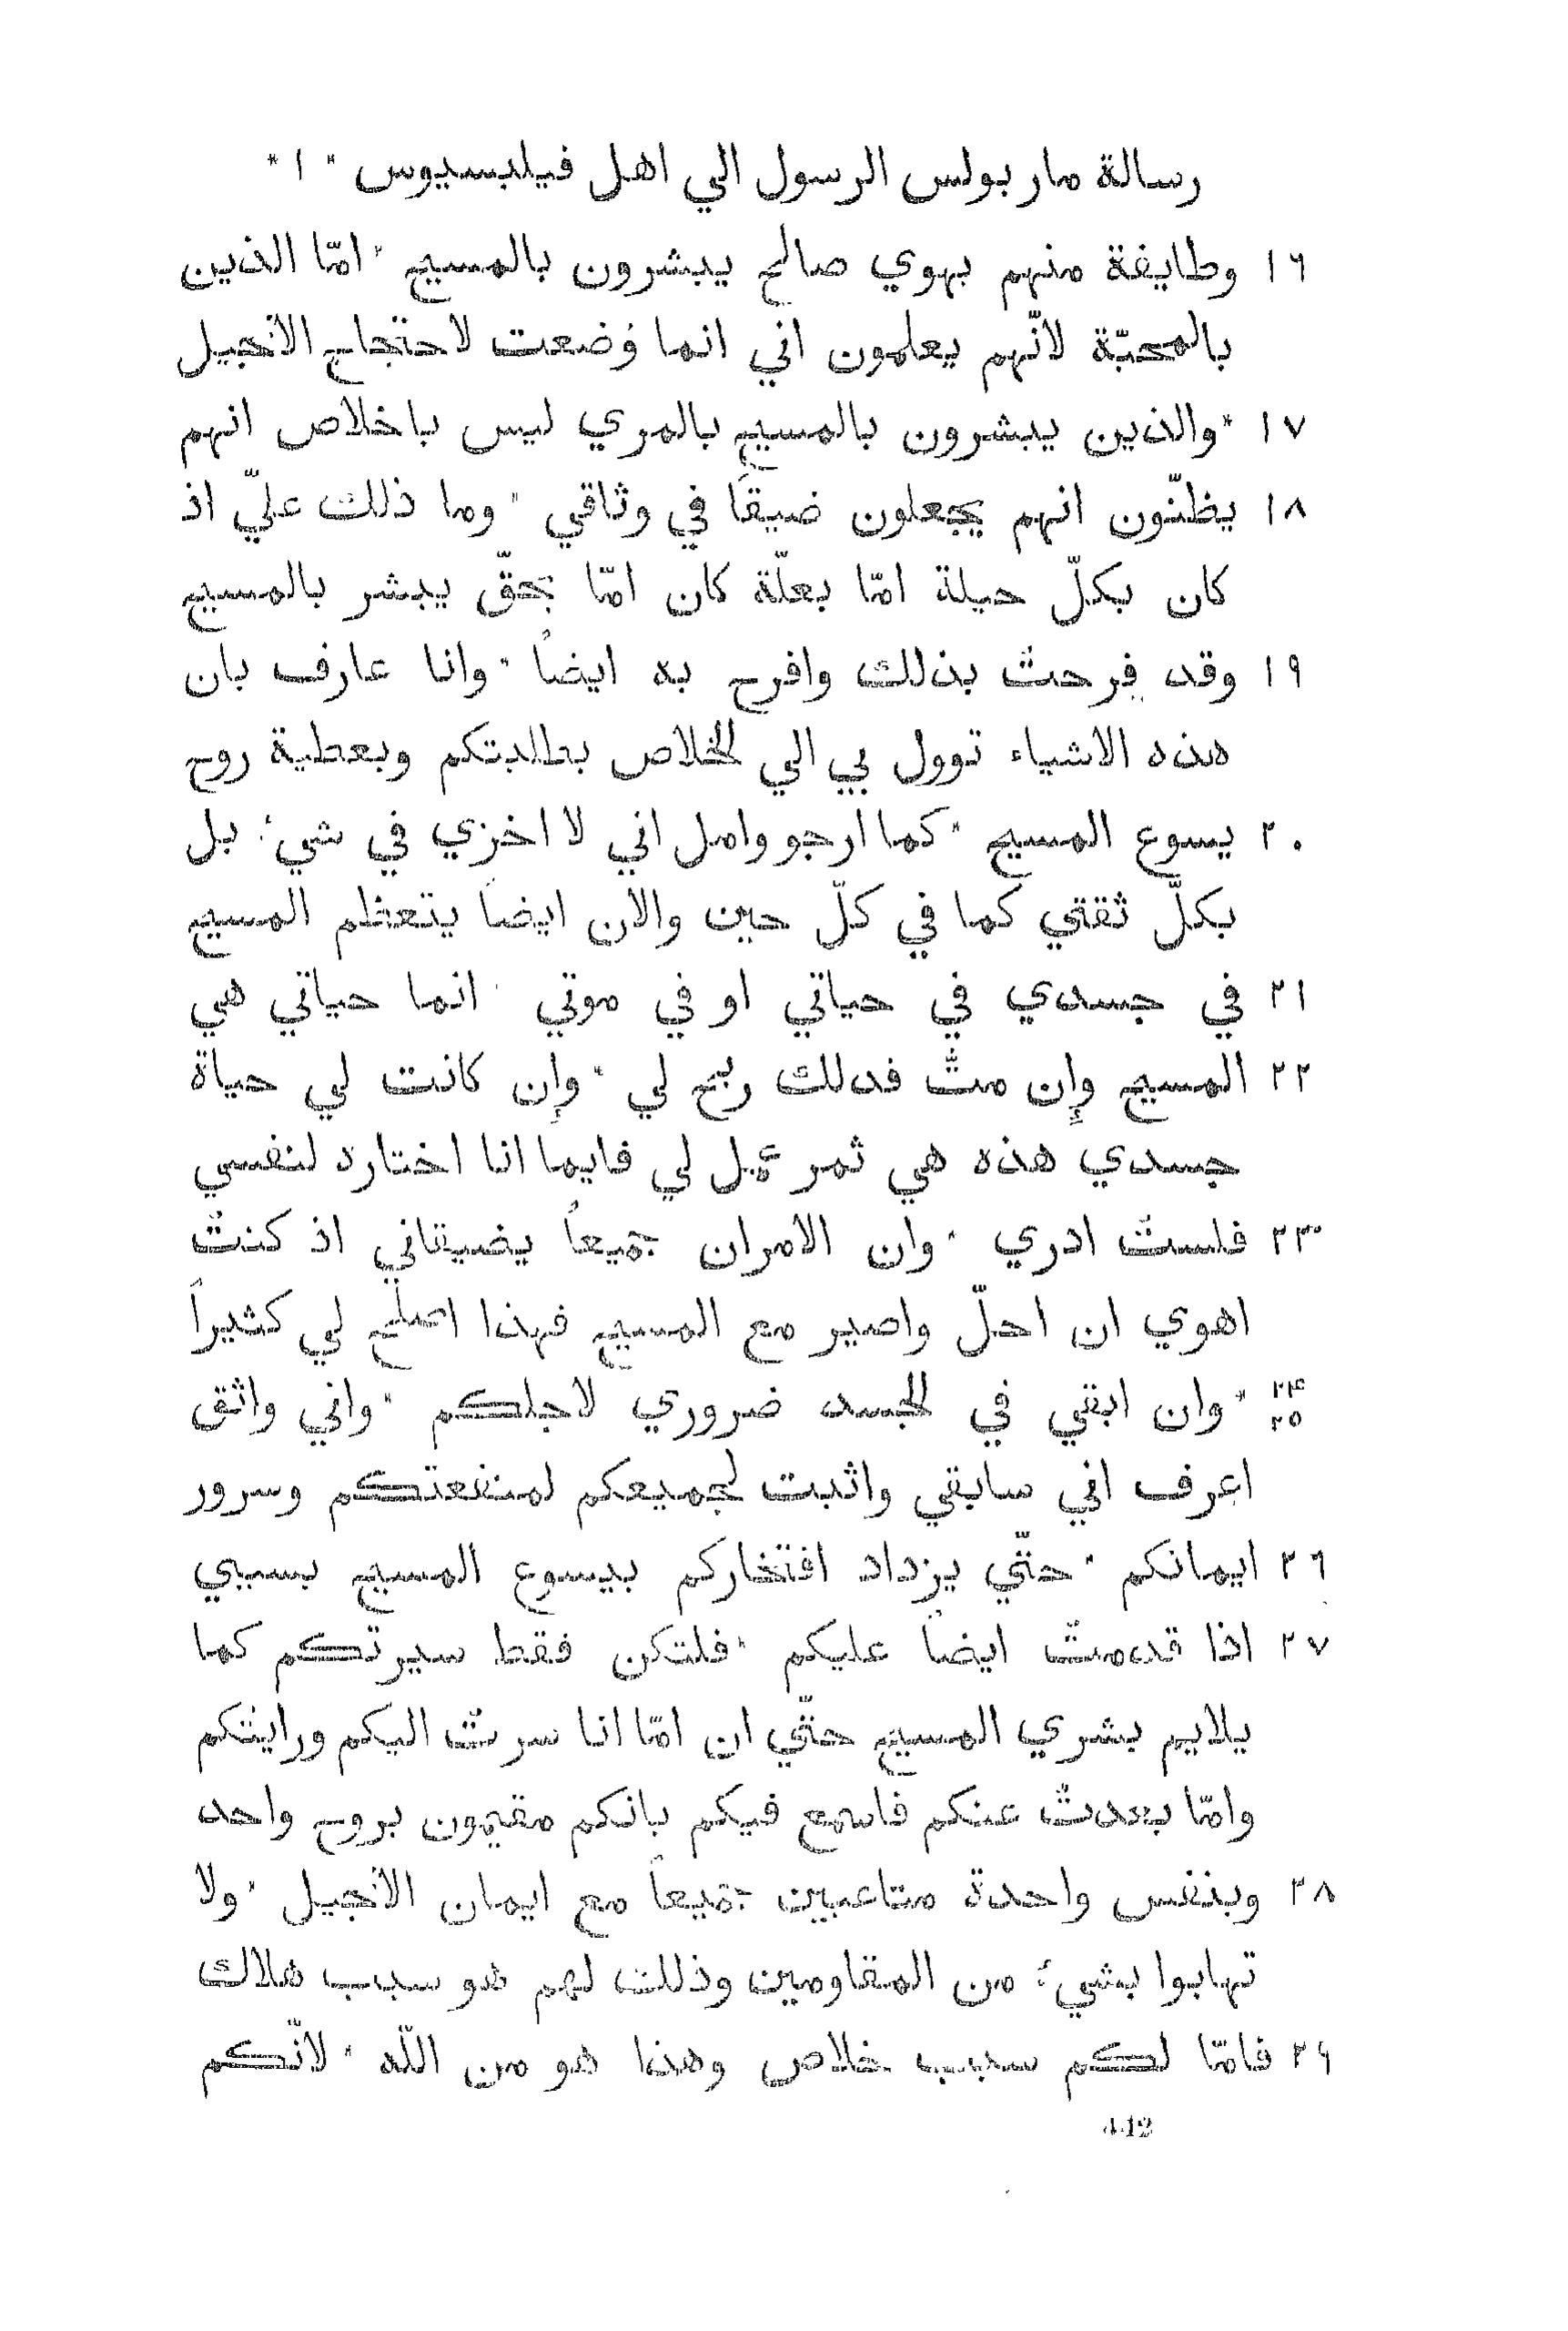 رسالة مار بولس الرسول الي اهل فيلبسيوس * ١ *
١٦ وطايفة منهم بهوي صالح يبشرون بالمسيح * امّا الذين
بالمحبّة لانّهم يعلمون اني انما وُضعت لاحتجاج الانجيل
١٧ * والذين يبشرون بالمسيح بالمري ليس باخلاص انهم
١٨ يظنّون انهم يجعلون ضيقًا في وثاقي * وما ذلك عليّ اذ
كان بكلّ حيلة امّا بعلّة كان امّا بحقّ يبشر بالمسيح
١٩ وقد فرحتُ بذلك وافرح به ايضاً * وانا عارف بان
هذه الاشياء توول بي الي الخلاص بطلبتكم وبعطية روح
٢٠ يسوع المسيح * كما ارجو وامل اني لا اخزي في شيء بل
بكلّ ثقتي كما في كلّ حين والان ايضاً يتعظم المسيح
٢١ في جسدي في حياتي او في موتي * انما حياتي هي
٢٢ المسيح وإن متُّ فدلك ربح لي * وإن كانت لي حياة
جسدي هذه هي ثمر عمل لي فايما انا اختاره لنفسي
٢٣ فلستُ ادري * وان الامران جميعاً يضيقاني اذ كنتُ
اهوي ان احلّ واصير مع المسيح فهذا اصلح لي كثيراً
٢٤ ٢٥ * وان ابقي في الجسد ضروري لاجلكم * واني واثق
اعرف اني سابقي واثبت لجميعكم لمنفعتكم وسرور
٢٦ ايمانكم * حتّي يزداد افتخاركم بيسوع المسيح بسببي
٢٧ اذا قدمتُ ايضاً عليكم * فلتكن فقط سيرتكم كما
يلايم بشري المسيح حتّي ان امّا انا سرتُ اليكم ورايتكم
وامّا بعدتُ عنكم فاسمع فيكم بانكم مقيمون بروح واحد
٢٨ وبنفس واحدة متاعبين جميعاً مع ايمان الانجيل * ولا
تهابوا بشيء من المقاومين وذلك لهم هو سبب هلاك
٢٩ فامّا لكم سبب خلاص وهذا هو من اللّه * لانّكم
442